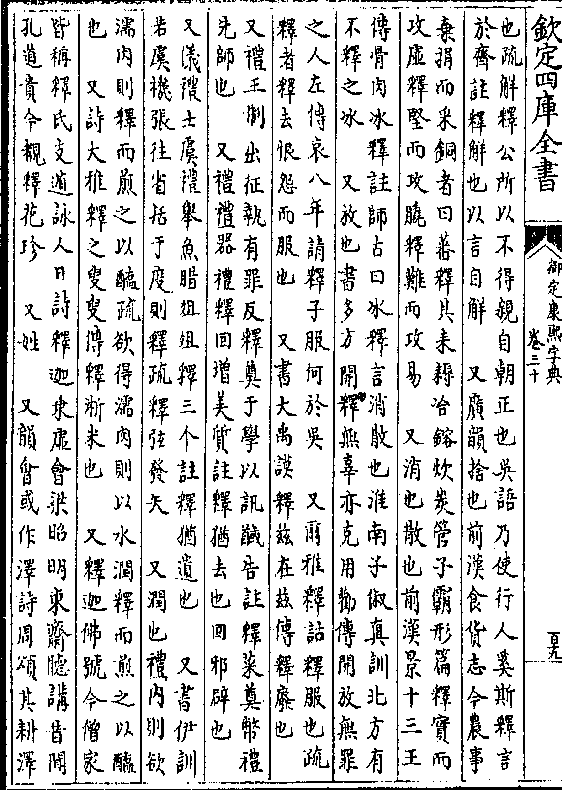 欽定四庫全書
御定康熙字典
卷三十
百九
也疏解釋公所以不得親自朝正也吳語乃使行人奚斯釋言
於齊註釋解也以言自解　又廣韻捨也前漢食貨志今農事
棄捐而采銅者日蕃釋其耒耨冶鎔炊炭管子霸形篇釋實而
攻虛釋堅而攻脆釋難而攻易　又消也散也前漢景十三王
傳骨肉冰釋註師古曰冰釋言消散也淮南子俶真訓北方有
不釋之冰　又放也書多方開釋無辜亦克用勸傳開放無罪
之人左傳哀八年請釋子服何於吳　又爾雅釋詁釋服也疏
釋者釋去恨怨而服也　又書大禹謨釋茲在茲傳釋廢也
又禮王制出征執有罪反釋奠于學以訊馘告註釋菜奠幣禮
先師也　又禮禮器禮釋回增美質註釋猶去也回邪辟也
又儀禮士虞禮舉魚腊俎俎釋三个註釋猶遺也　又書伊訓
若虞機張往省括于度則釋疏釋弦發矢　又潤也禮內則欲
濡肉則釋而煎之以醢疏欲得濡肉則以水潤釋而煎之以醢
也　又詩大雅釋之叟叟傳釋淅米也　又釋迦佛號今僧家
皆稱釋氏支遁詠人日詩釋迦乗虛會梁昭明東齋聽講昔聞
孔道貴今覩釋花珍　又姓　又韻會或作澤詩周頌其耕澤